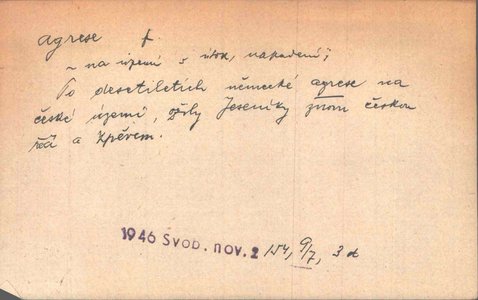 agrese f.
~ na území s útok, napadení;
Po desetiletích německé agrese na
české území, ožily Jeseníky znovu českou
řečí a zpěvem.
1946 Svob. nov. 2 154, 9/7, 3 d